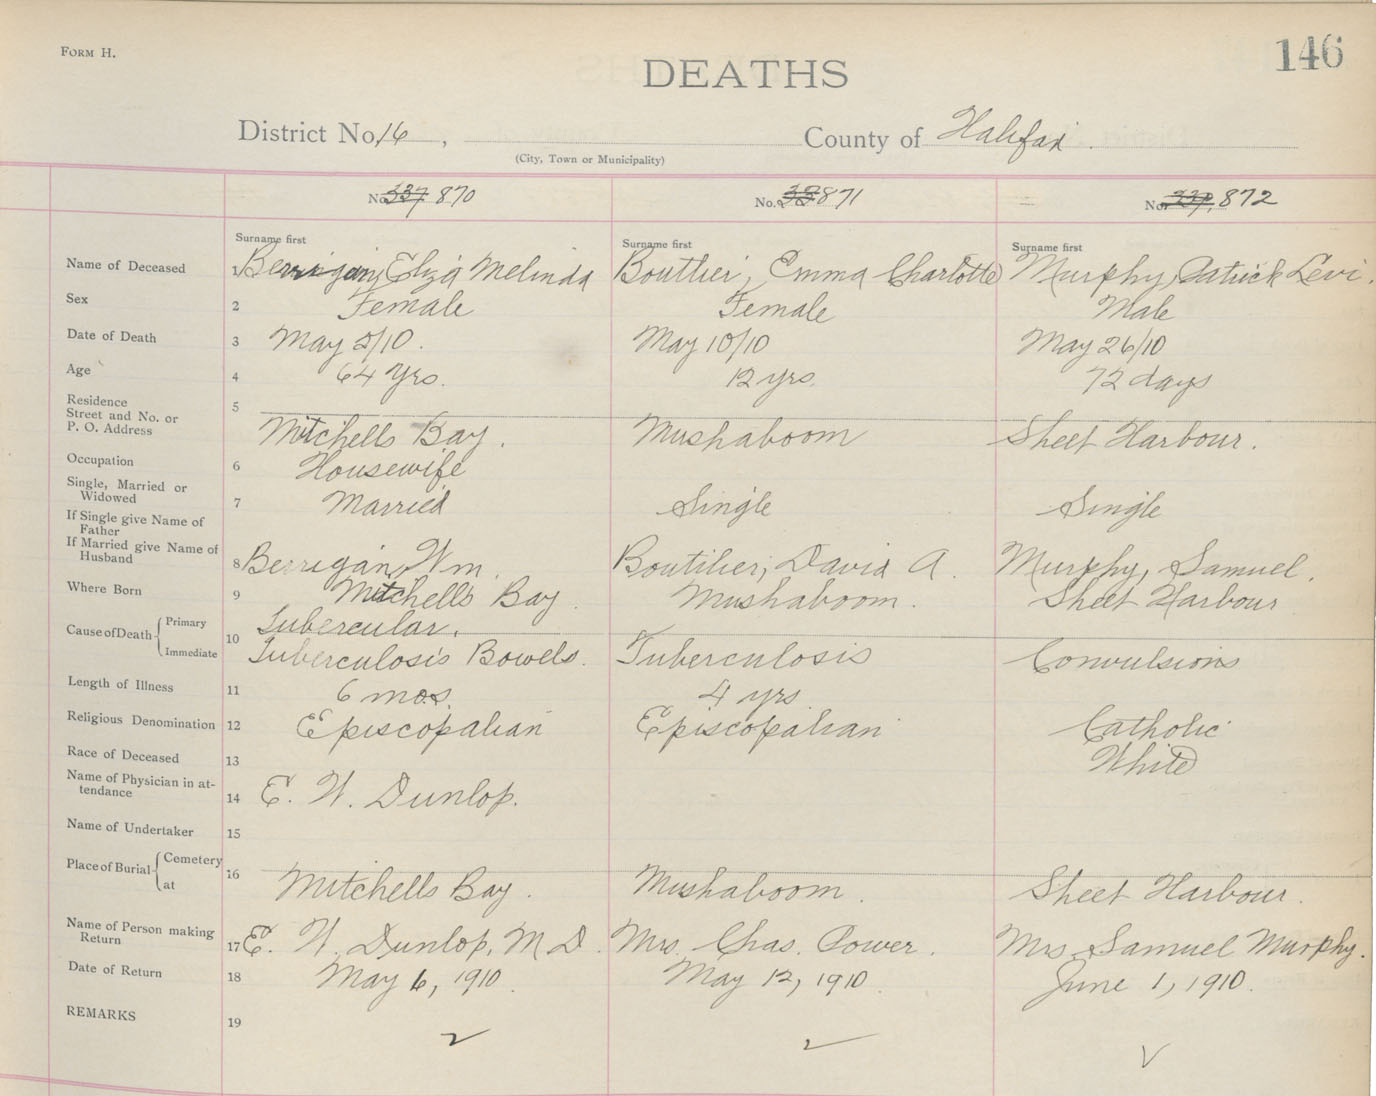 FORM H.
146
DEATHS
District No. 16, County of Halifax.
(City, Town or Municipality)
No. 337 870 No. 871 No. 872
Surname first Surname first Surname first
Name of Deceased 1 Berrigan, Eliza Melinda Boutlier, Emma Charlotte Murphy, Patrick Levi.
Sex 2 Female Female Male
Date of Death 3 May 5/10. May 10/10 May 26/10
Age 4 64 yrs. 12 yrs. 72 days
Residence 5
Street and No. or
P. O. Address Mitchells Bay. Mushaboom Sheet Harbour.
Occupation 6 Housewife
Single, Married or
Widowed 7 Married Single Single
If Single give Name of
Father
If Married give Name of
Husband 8 Berrigan, Wm. Boutilier, David A. Murphy, Samuel.
Where Born 9 Mitchells Bay. Mushaboom. Sheet Harbour
Cause of Death Primary 10 Tubercular.
Immediate Tuberculosis Bowels. Tuberculosis Convulsions
Length of Illness 11 6 mos. 4 yrs
Religious Denomination 12 Episcopalian Episcopalian Catholic
Race of Deceased 13 White
Name of Physician in at-
tendance 14 E. W. Dunlop.
Name of Undertaker 15
Place of Burial Cemetery 16
at Mitchells Bay. Mushaboom. Sheet Harbour.
Name of Person making
Return 17 E. W. Dunlop, M D. Mrs. Chas. Power. Mrs. Samuel Murphy.
Date of Return 18 May 6, 1910. May 12, 1910. June 1, 1910.
REMARKS 19